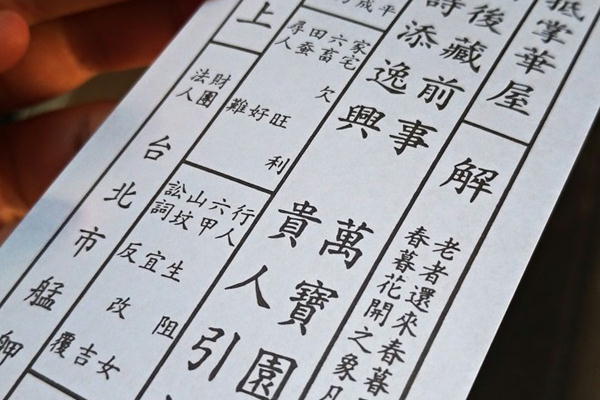 抵掌華屋
解
老者還來春暮
春暮花開之象凡
後藏前事
詩添逸興
萬寶園
貴人引
家宅
六畜
田蚕
尋人
欠
旺利
好
難
行人
六甲
山坟
訟詞
生阻女
宜吉
反改覆
上
財團
法人
台北市艋舺